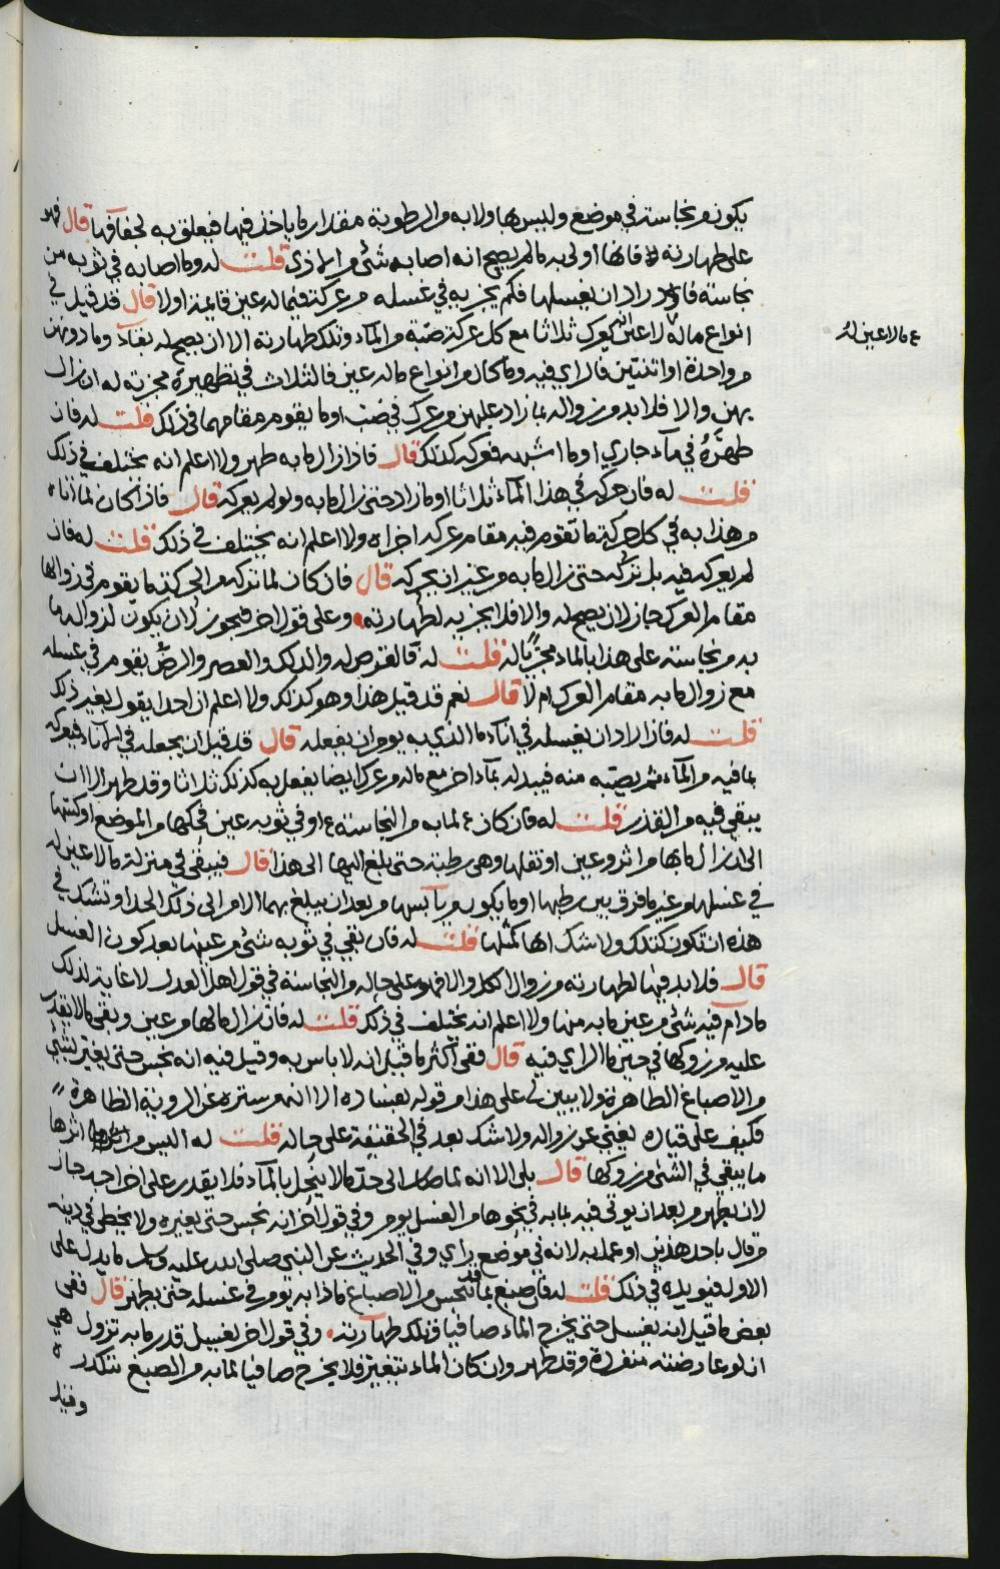 يكون من نجاسة في موضع وليس بها ولا به من الرطوبة مقدار ما ياخذ فيها فيعلق به لجفافها قال فهو
على طهارته فانها اولى به ما لم يصح انه اصابه شئ من الاذى قلت له وما اصابه في ثوبه من
نجاسة فاراد ان يغسلها فكم يجزيه في غسله من عركة فيما له عين قايمة اولا قال قد قيل في
انواع ماله لا عين يعرك ثلاثا مع كل عركة صبة من المآء وتلك طهارته الا ان يصح له بقآء وما دونهن
ع ما لا عين له
من واحدة او اثنتين فالراي فيه وما كان من انواع ماله عين فالثلاث في تطهيره مجزية له ان زال
بهن والا فلا بد من زواله بما زاد عليهن من عرك في صب او ما يقوم مقامهما في ذلك قلت له فان
طهره في مآء جاري او ما اشبهه فعركه كذلك قال فاذا زال ما به طهر ولا اعلم انه يختلف في ذلك
قلت له فان حركه في هذا المآء ثلاثا او ما زاد حتى زال ما به ولو لم يعركه قال فاذا كان لما اتاه
من هذا به في كل حركة ما تقوم فيه مقام عركه اجزاه ولا اعلم انه يختلف في ذلك قلت له فان
لم يعركه فيه بل تركه حتى زال ما به من غير ان يحركه قال فان كان لما تركه من الحركة ما يقوم في زوالها
مقام العرك جاز لان يصح له والا فلا يجزيه لطهارته وعلى قول اخر فيجوز لان يكون لزواله ما
به من نجاسته على هذا بالماء مجزيا له قلت له فالقرص له والدلك والعصر والرض يقوم في غسله
مع زوال ما به مقام العرك ام لا قال نعم قد قيل هذا وهو كذلك ولا اعلم ان احدا يقول بغير ذلك
قلت له فان اراد ان يغسله في انآء ما الذي به يومر ان يفعله قال قد قيل ان يجعله في الانآء فيعركه
بما فيه من المآء ثم يصبه منه فيبدله بمآء اخر مع ماله من عرك ايضا يفعل به كذلك ثلاثا وقد طهر الا ان
يبقى فيه من القذر قلت له فان كان لما به من النجاسة او في ثوبه عين فحكها من الموضع او كشتها
الى ان زال ما بها من اثر وعين او تفلها وهي رطبة حتى بلغ اليها الى هذا قال فيبقى في منزلة ما لا عين له
في غسلها من غير ما فرق بين رطبها او ما يكون من يآبسها من بعد ان يبلغ بهما الامر الى ذلك الحد او تشك في
هذه ان تكون كتلك ولا شك انها كمثلها قلت له فان بقي في ثوبه شئ من عينها بعد كون الغسل
قال فلا بد فيها لطهارته من زوال الكل والا فهو على حاله من النجاسة في قول اهل العدل لا غاية لذلك
ما دام فيه شئ من عين ما به منها ولا اعلم انه يختلف في ذلك قلت له فان زال ما لها من عين وبقي ما لا يقدر
عليه من زوكها في حين ما الراي فيه قال ففي اكثر ما قيل انه لا باس به وقيل فيه انه نجس حتى يغير بشئ
من الاصباغ الطاهرة ولا يبين لي على هذا من قوله لفساده الا انه من ستره عن الروية الظاهرة
فكيف على قياده يغني عن زواله ولا شك بعد في الحقيقة على حاله قلت له اليس من اثرها
ما يبقي في الشئ من زوكها قال بلى الا انه لما صار الى حد ما لا ينحل بالمآء فلا يقدر على اخراجه جاز
لان يطهر من بعد ان يوتى فيه بما به في نحوها من الغسل يومر وفي قول اخر انه نجس حتى يغيره ولا يخطى في دينه
من قال باحد هذين او عمل به لانه في موضع راي وفي الحديث عن النبي صلى الله عليه وسلم ما يدل على
الاول فيويده في ذلك قلت له فان صبغ بما قد نجس من الاصباغ ماذا به يومر في غسله حتى يطهر قال ففي
بعض ما قيل انه يغسل حتى يخرج الماء صافيا وتلك طهارته وفي قول اخر يغسل قدر ما به تزول هي
ان لو عارضته منفردة وقد طهر وان كان الماء يتغير فلا يخرج صافيا لما به من الصبغ تتكدر
وقيل